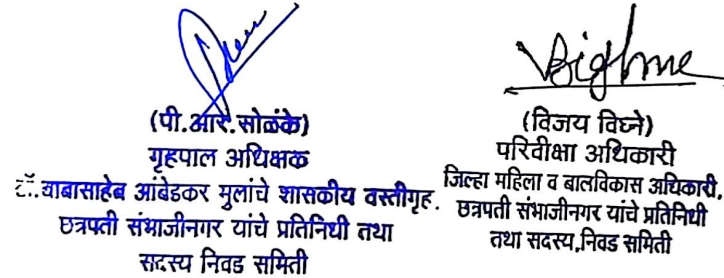 (पी.आर.सोळंके)
गृहपाल अधिक्षक
डॉ.बाबासाहेब आंबेडकर मुलांचे शासकीय वस्तीगृह.
छत्रपती संभाजीनगर यांचे प्रतिनिधी तथा
सदस्य निवड समिती
(विजय विघ्ने)
परिवीक्षा अधिकारी
जिल्हा महिला व बालविकास अधिकारी,
छत्रपती संभाजीनगर यांचे प्रतिनिधी
तथा सदस्य,निवड समिती